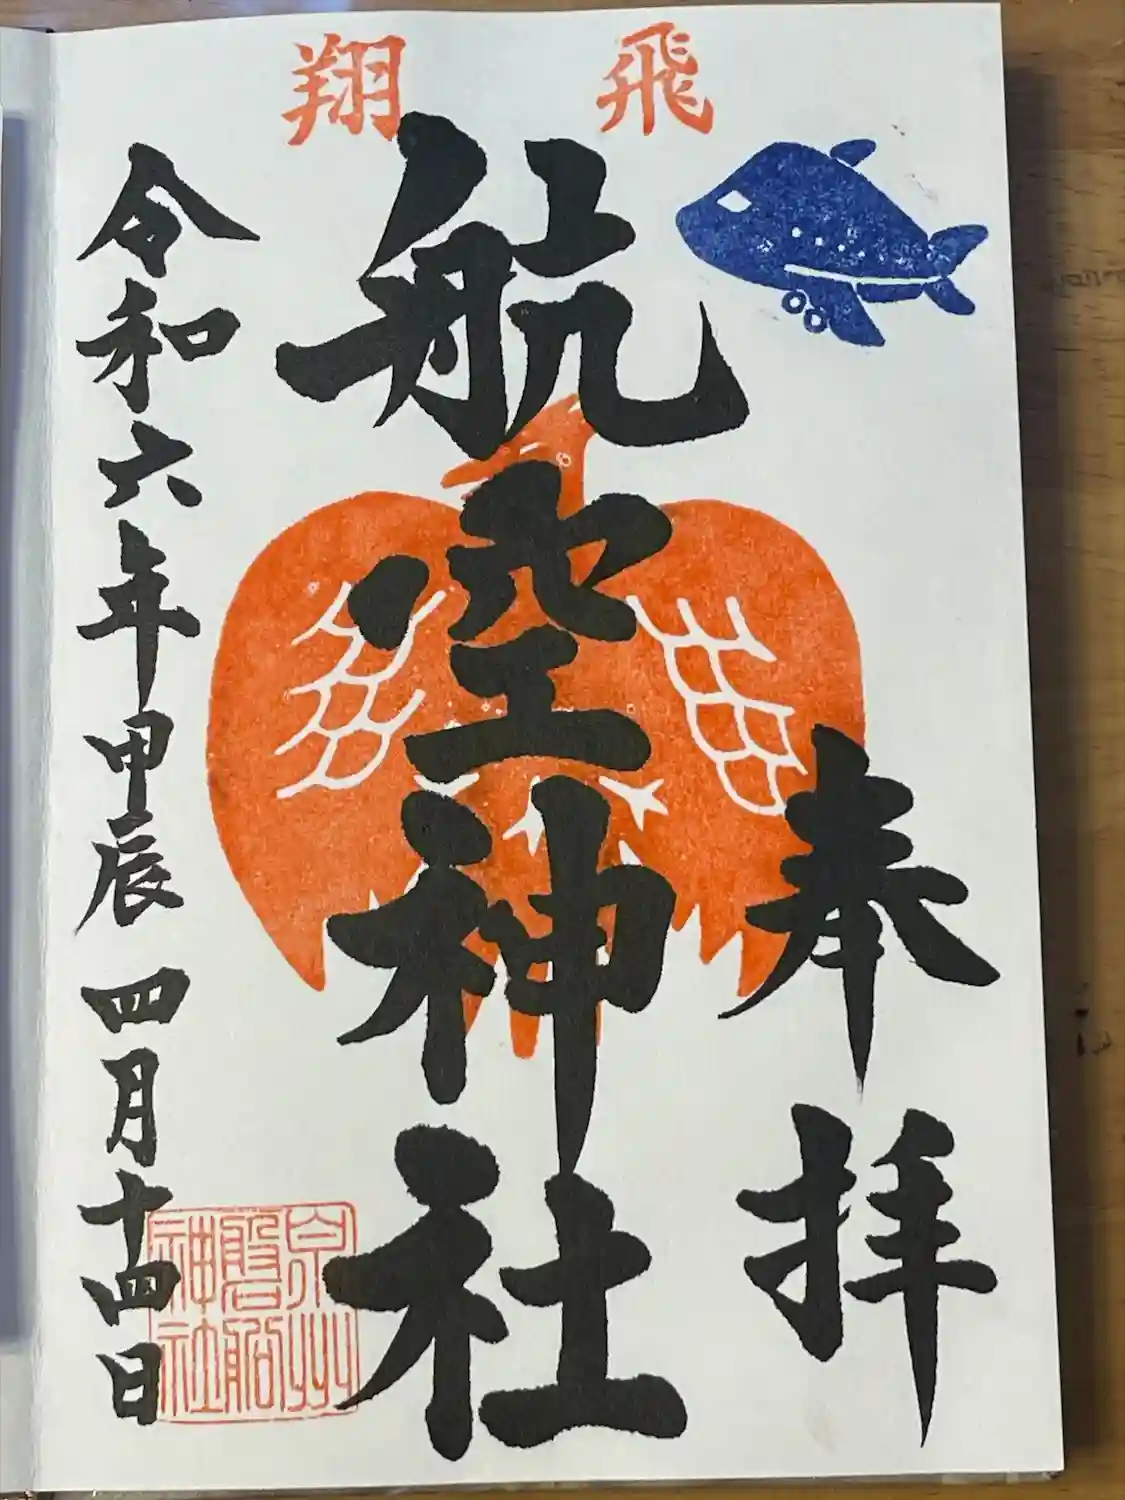 飛翔
奉拝
航空神社
令和六年甲辰四月十四日
泉州
磐船
神社